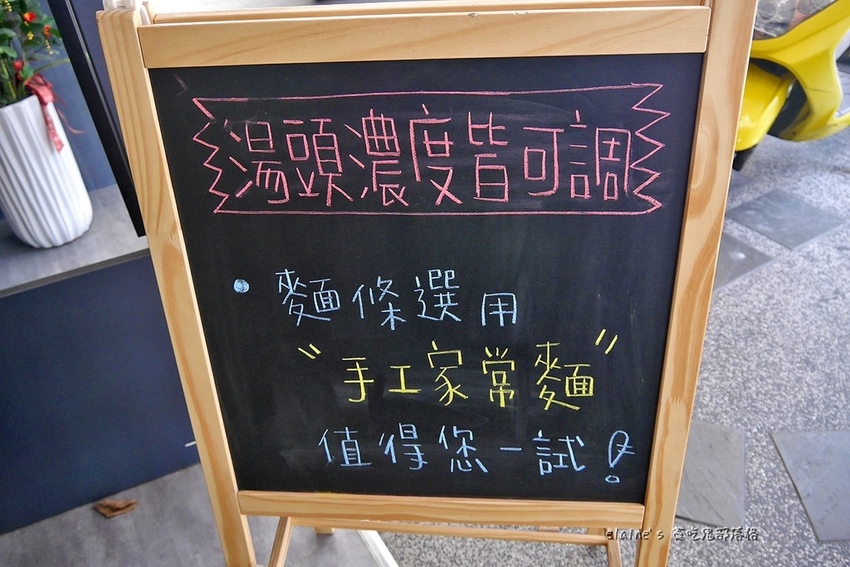 湯頭濃度皆可調
• 麵條選用
"手工家常麵"
值得您一試!
elaine's 愛吃鬼部落格